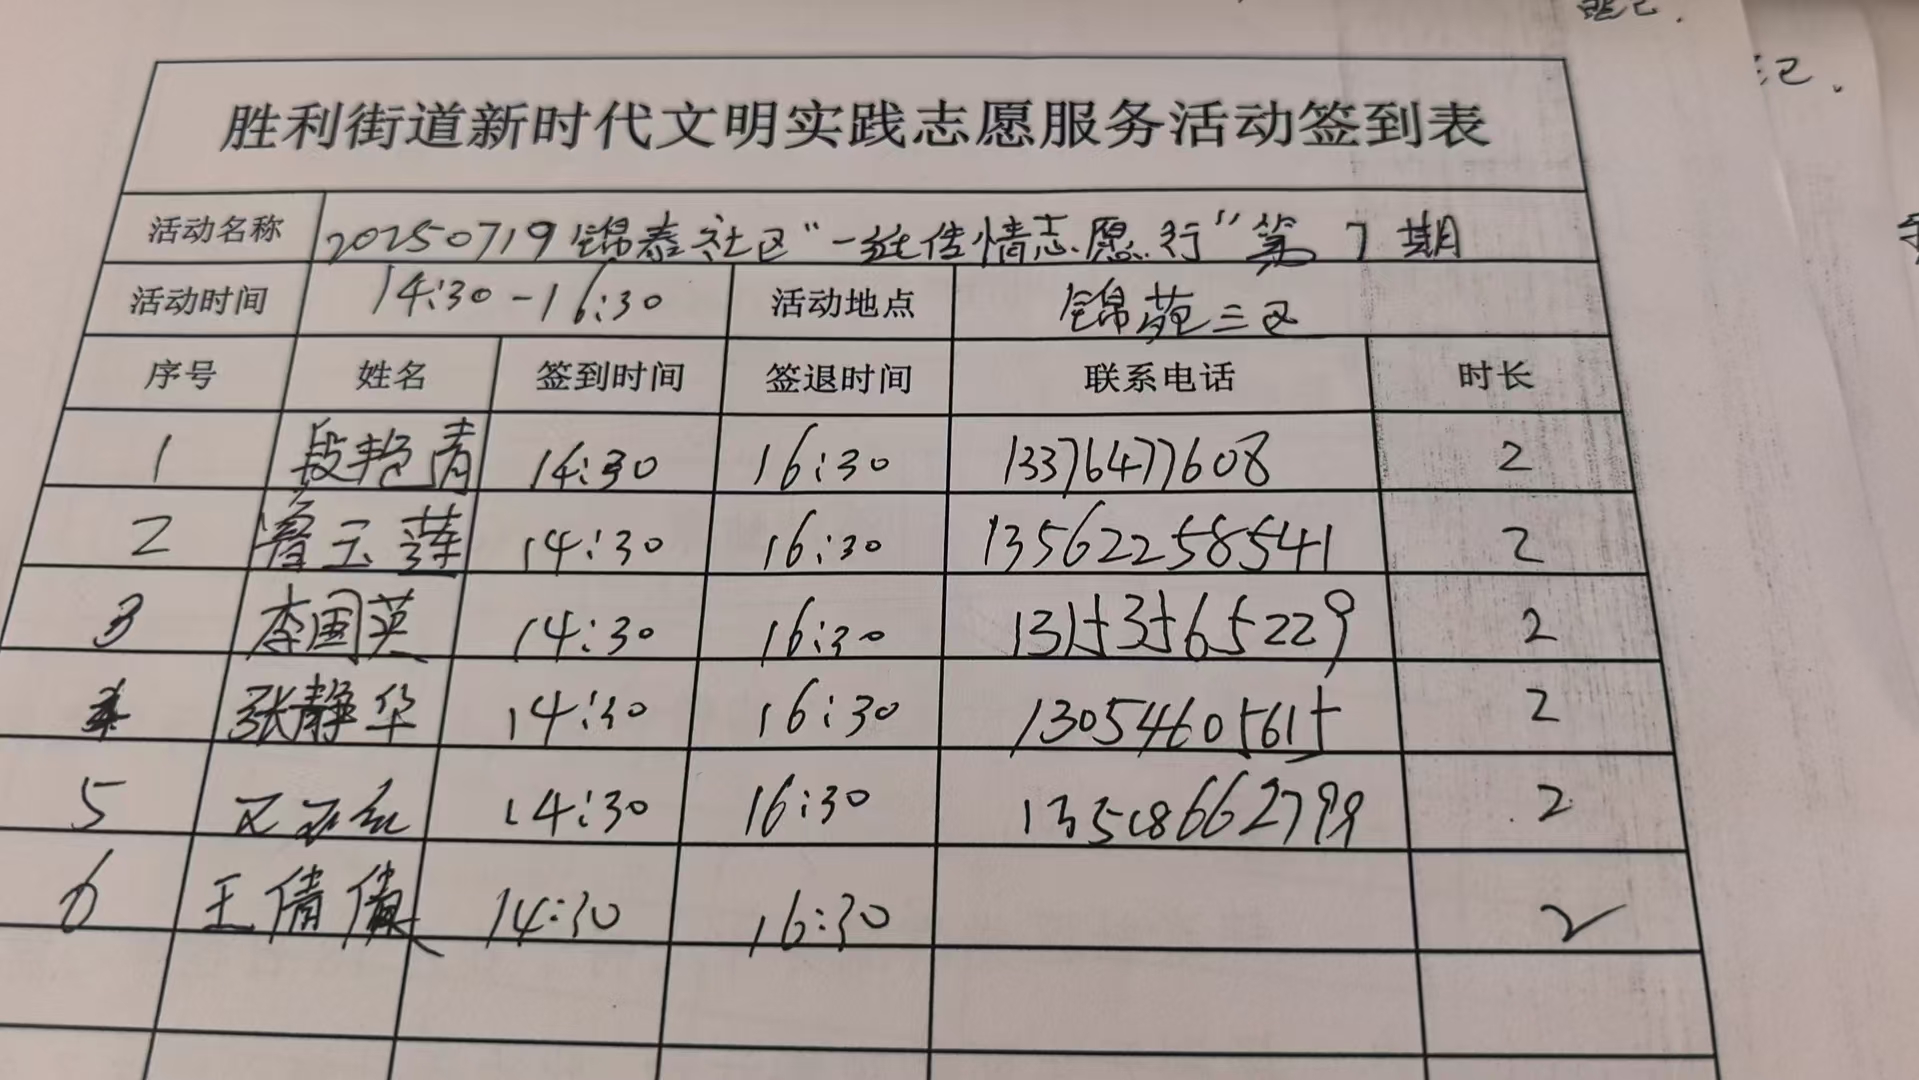 胜利街道新时代文明实践志愿服务活动签到表
活动名称 20250719锦泰社区“一廷传情志愿行”第7期
活动时间 14:30-16:30 活动地点 锦苑三区
序号 姓名 签到时间 签退时间 联系电话 时长
1 段艳青 14:30 16:30 13376477608 2
2 詹玉莲 14:30 16:30 13562258541 2
3 李国英 14:30 16:30 13153565229 2
4 张静华 14:30 16:30 13054605615 2
5 14:30 16:30 2
6 王倩倩 14:30 16:30 2